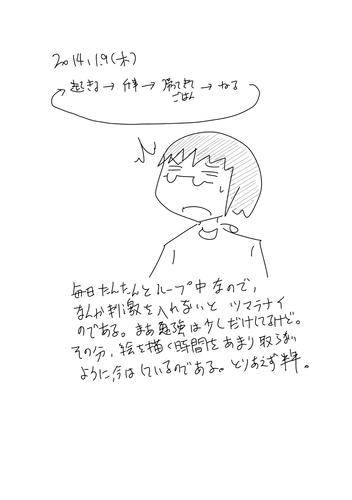 2014.1.9(木)
起きる→仕事→帰ってきてごはん→ねる
毎日たんたんとループ中なので、
なんか刺激を入れないと ツマラナイ
のである。まあ勉強は少しだけしてるけど。
その分、絵を描く時間をあまり取らない
ように、今はしているのである。とりあえず半年。